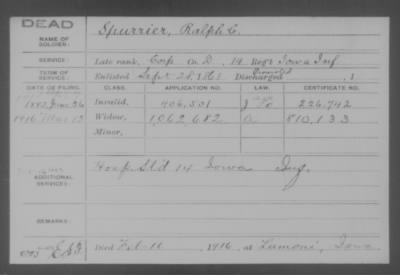 DEAD
NAME OF SOLDIER: Spurrier, Ralph C.
SERVICE: Late rank, Corp Co. D, 14 Regt Iowa Inf
TERM OF SERVICE: Enlisted Sept 28, 1861 Discharged , 1
DATE OF FILING. CLASS. APPLICATION NO. LAW. CERTIFICATE NO.
1882 June 26 Invalid. 406,501 226,742
1916 Mar 13 Widow, 1,062,682 810,133
Minor,
ADDITIONAL SERVICES: Hosp Std 14 Iowa Inf.
REMARKS:
Died Feb-10, 1916, at Lamoni, Iowa